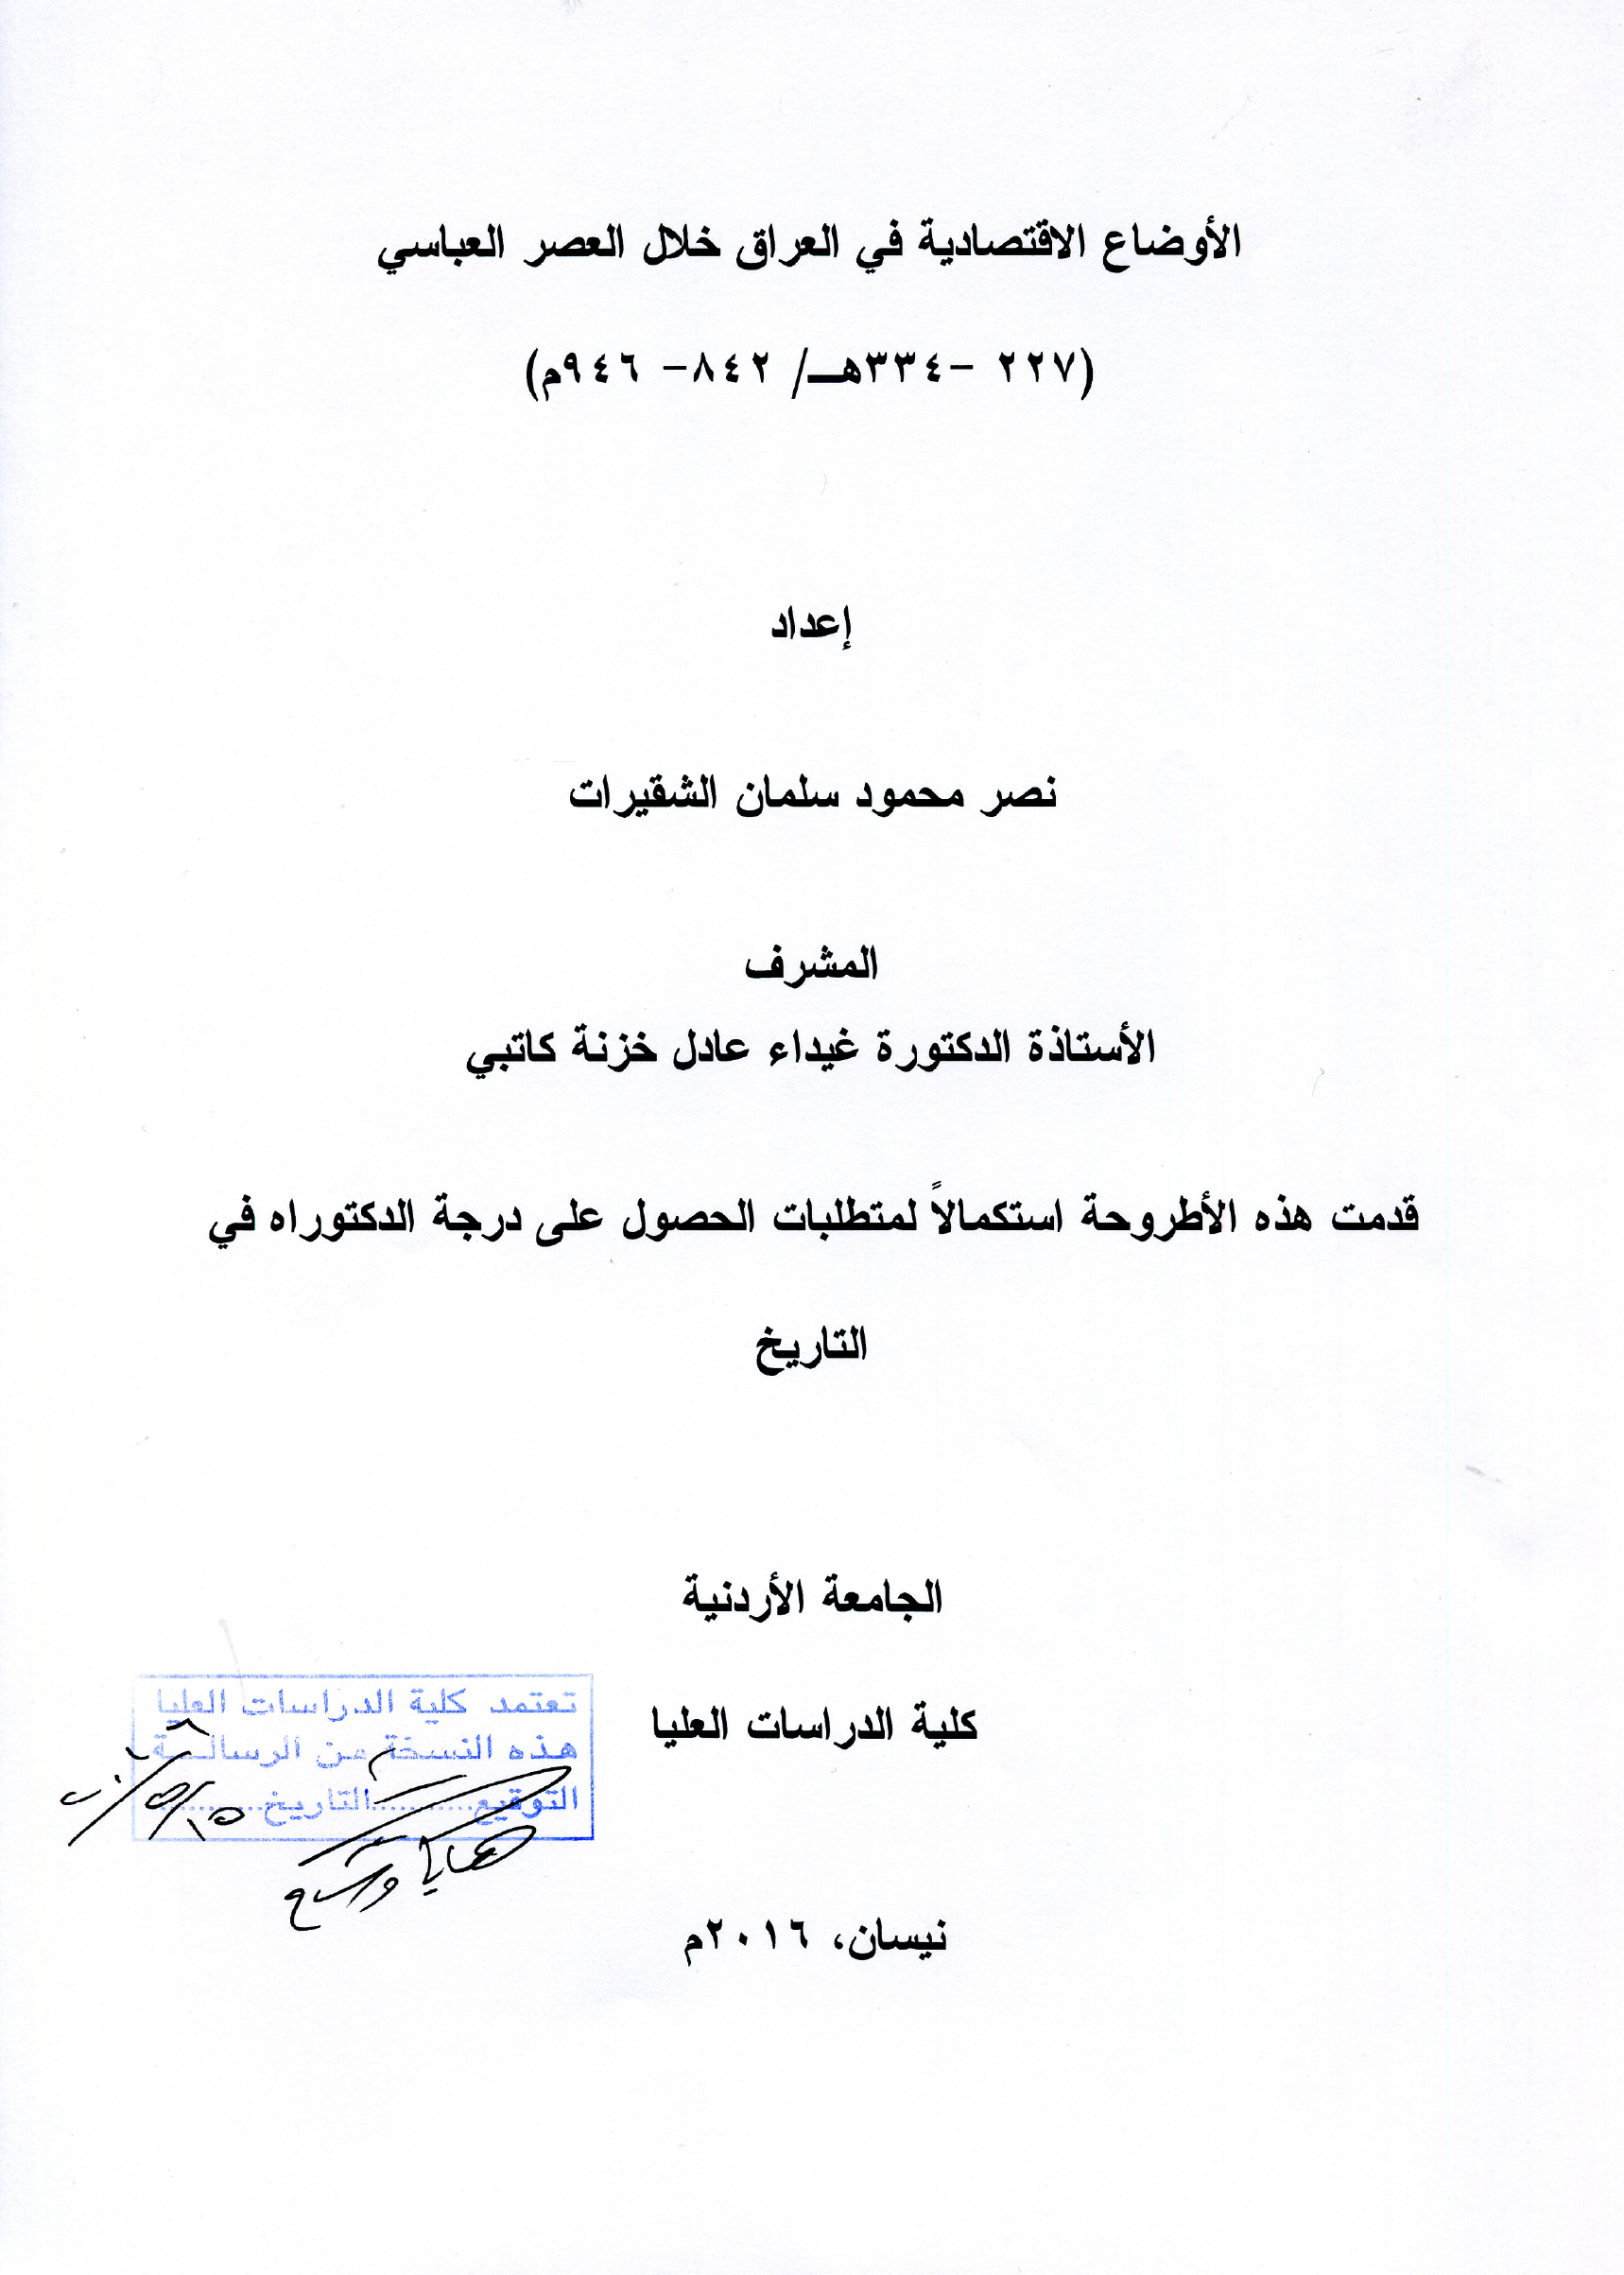 الأوضاع الاقتصادية في العراق خلال العصر العباسي
(٢٢٧ -٣٣٤هـ/ ٨٤٢- ٩٤٦م)
إعداد
نصر محمود سلمان الشقيرات
المشرف
الأستاذة الدكتورة غيداء عادل خزنة كاتبي
قدمت هذه الأطروحة استكمالاً لمتطلبات الحصول على درجة الدكتوراه في
التاريخ
الجامعة الأردنية
كلية الدراسات العليا
تعتمد كلية الدراسات العليا
هذه النسخة من الرسالـــة
التوقيع............التاريخ............
نيسان، ٢٠١٦م